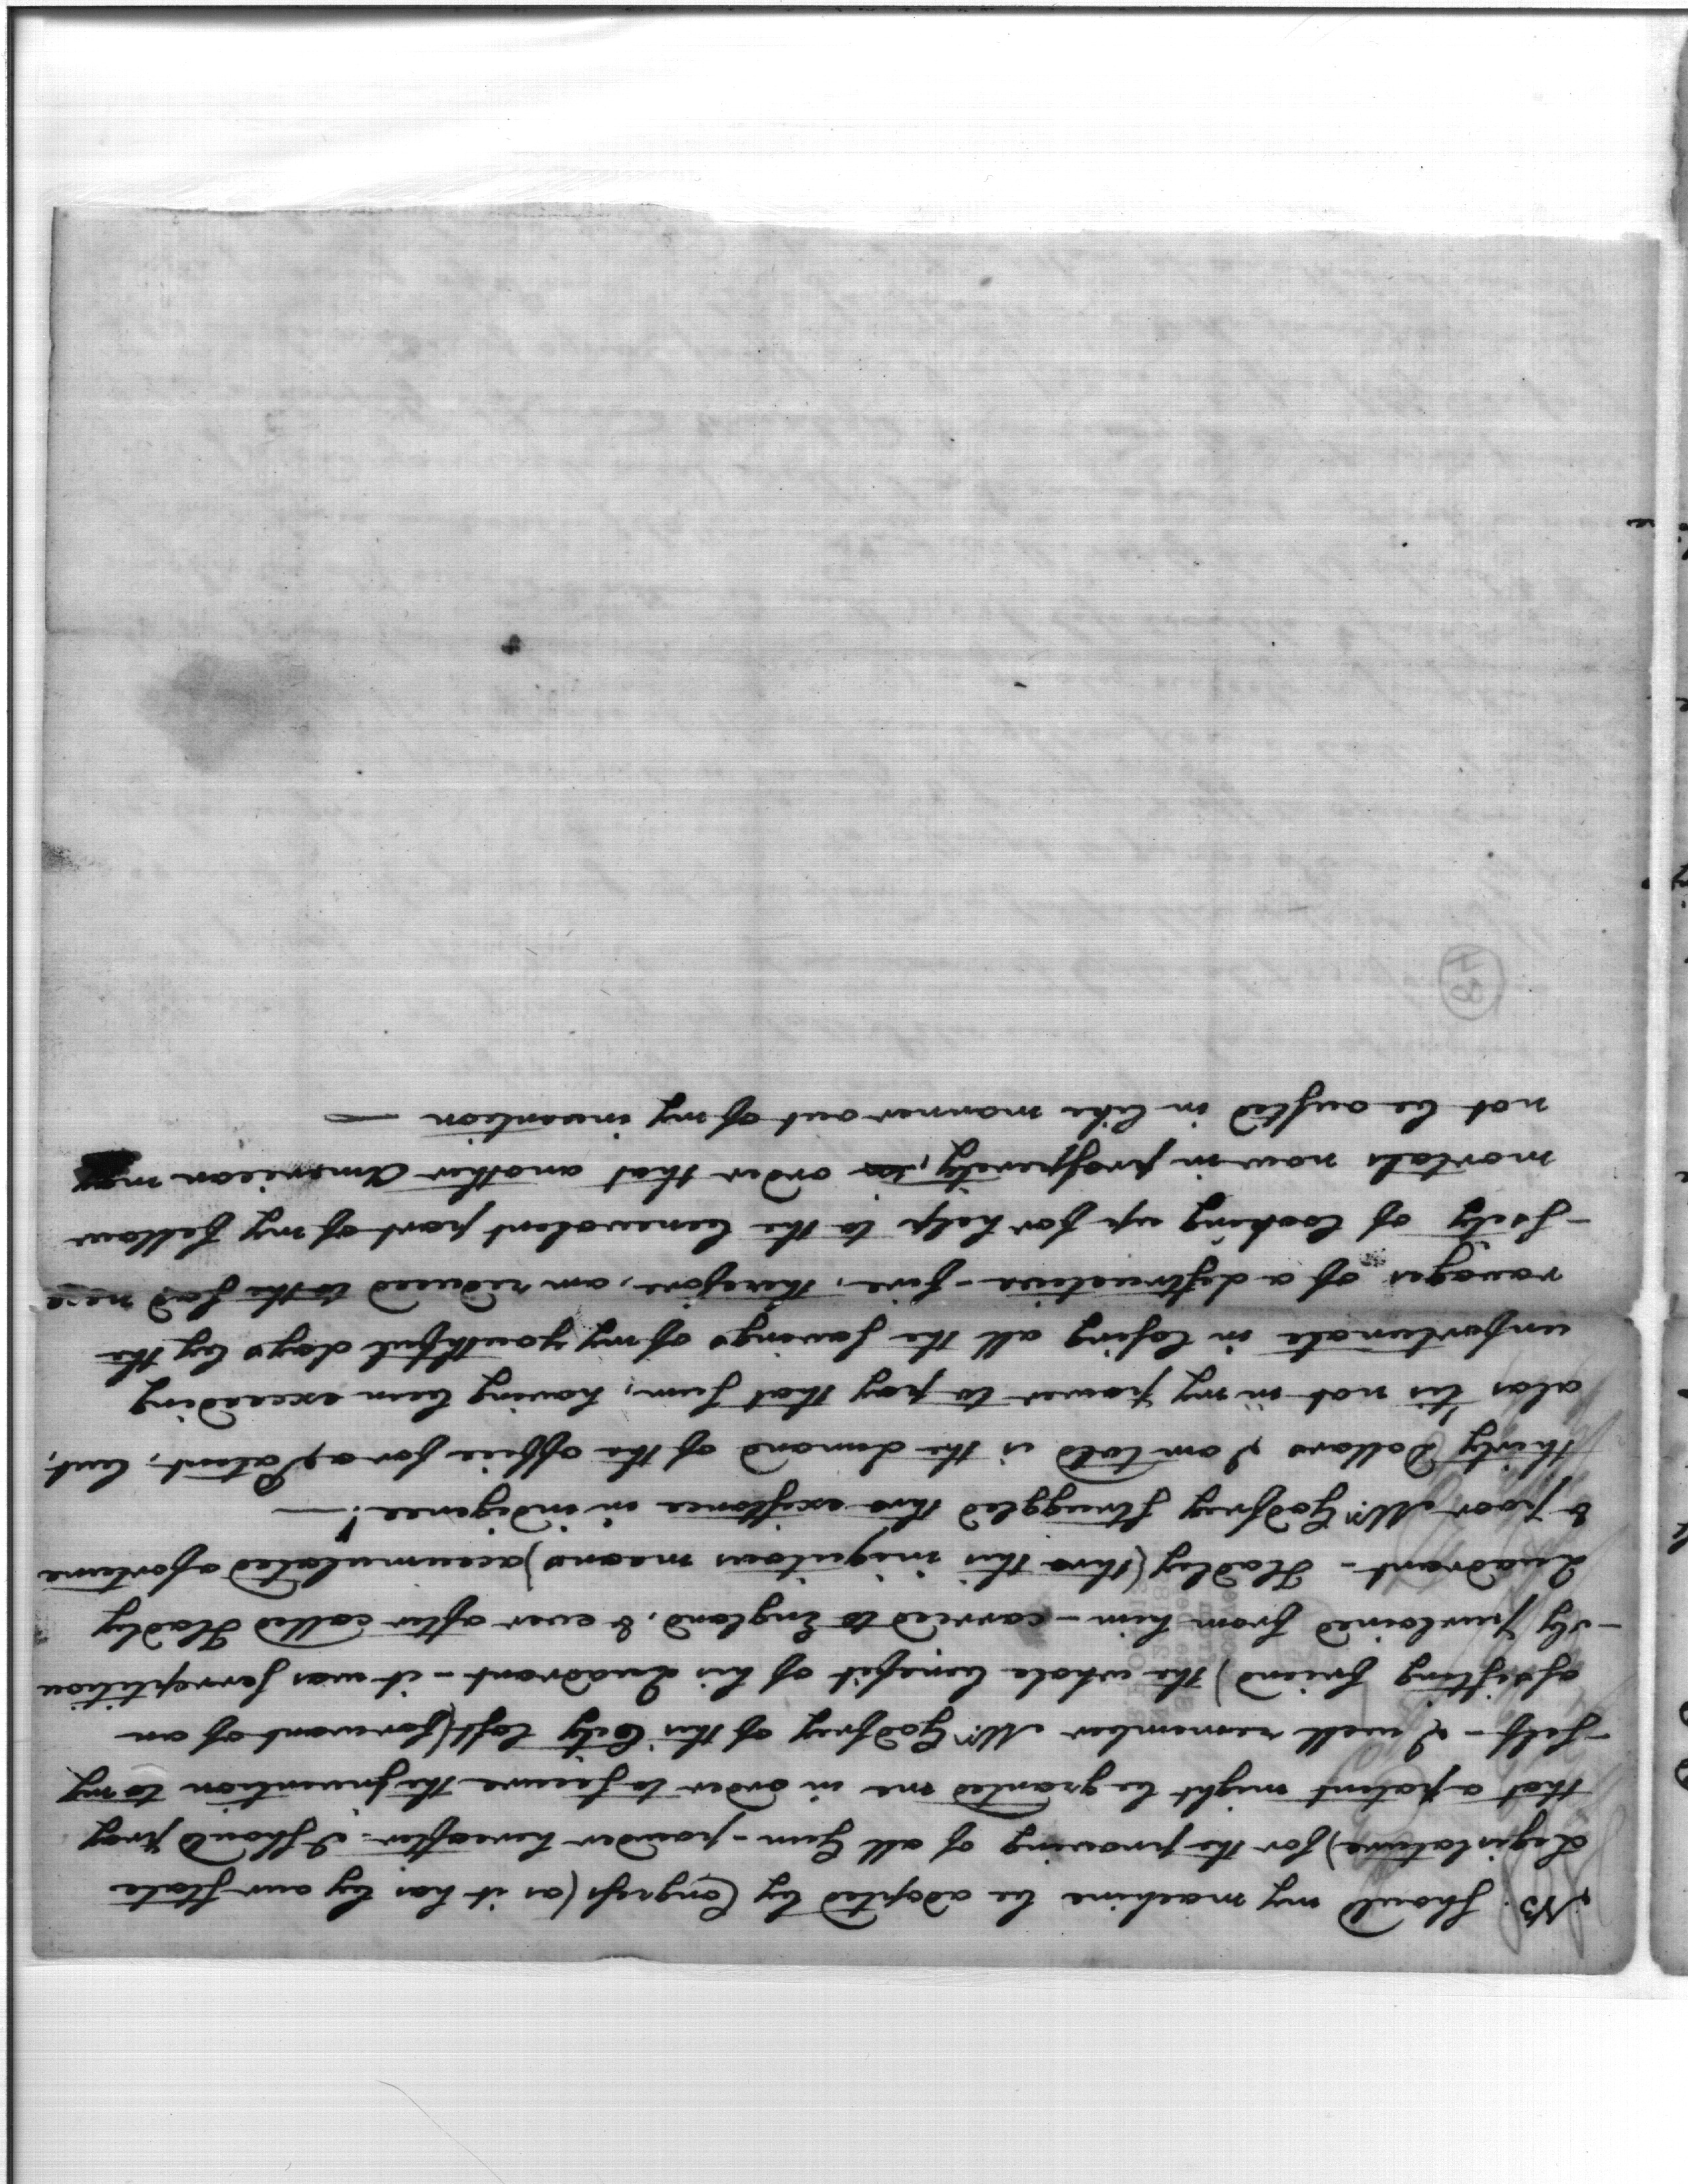 NB. Should my machine be adopted by Congress (as it has by our State
Legislature) for the proving of all Gun-powder hereafter: I should pray
that a patent might be granted me in order to secure the invention to my
-self - I well remember Mr. Godfrey of this City lost (for want of an
assisting friend) the whole benefit of his Quadrant - it was surreptitious
-ly purloined from him - carried to England, & ever after called Hadley
Quadrant - Hadley (thro this iniquitous means) accumulated a fortune
& poor Mr. Godfrey struggled thro existence in indigence! —
thirty Dollars I am told is the demand of the office for a Patent, but,
alas 'tis not in my power to pay that sum, having been exceeding
unfortunate in losing all the savings of my youthful days by the
ravages of a destructive-fire, therefore, am reduced to the sad nece
-ssity of looking up for help to the benevolent part of my fellow
mortals now in prosperity, in order that another American may
not be ousted in like manner out of my invention —
84